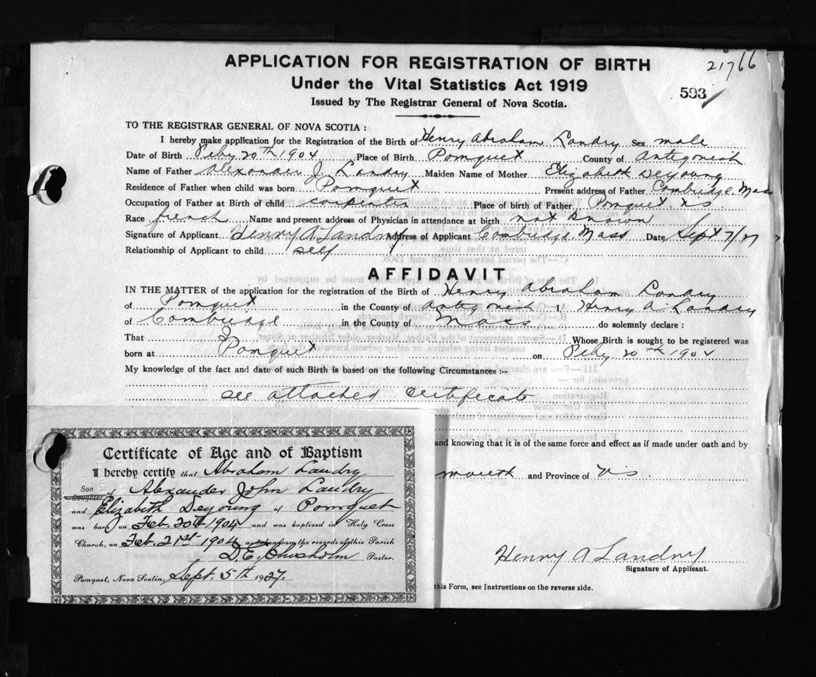 21766
APPLICATION FOR REGISTRATION OF BIRTH
Under the Vital Statistics Act 1919
593
Issued by The Registrar General of Nova Scotia.
TO THE REGISTRAR GENERAL OF NOVA SCOTIA :
I hereby make application for the Registration of the Birth of Henry Abraham Landry Sex male
Date of Birth Feby 20th 1904 Place of Birth Pomquet County of Antigonish
Name of Father Alexander J Landry Maiden Name of Mother Elizabeth Deyoung
Residence of Father when child was born Pomquet Present address of Father Cambridge Mass
Occupation of Father at Birth of child carpenter Place of birth of Father Pomquet NS
Race french Name and present address of Physician in attendance at birth not known
Signature of Applicant Henry A Landry Address of Applicant Cambridge Mass Date Sept 7/27
Relationship of Applicant to child self
AFFIDAVIT
IN THE MATTER of the application for the registration of the Birth of Henry Abraham Landry
of Pomquet in the County of Antigonish I, Henry A. Landry
of Cambridge in the County of Mass do solemnly declare :
That I Whose Birth is sought to be registered was
born at Pomquet on Feby 20th 1904
My knowledge of the fact and date of such Birth is based on the following Circumstances :-
see attached certificate
and knowing that it is of the same force and effect as if made under oath and by
mouth and Province of NS
Henry A Landry
Signature of Applicant.
this Form, see Instructions on the reverse side.
Certificate of Age and of Baptism
I hereby certify that Abraham Landry
Son
Daughter of Alexander John Landry
and Elizabeth Deyoung of Pomquet
was born on Feb. 20th 1904 and was baptized in Holy Cross
Church, on Feb. 21st 1904 from the records of this Parish
D.E. Chisholm Pastor.
Pomquet, Nova Scotia, Sept. 5th 1927.